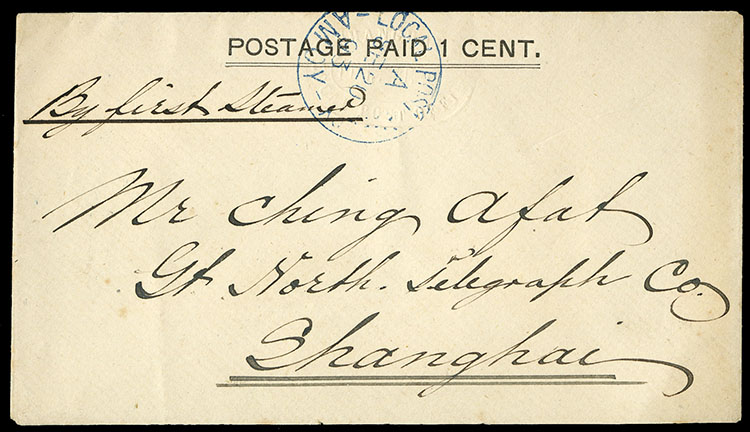 LOCAL POST
A
SE 20
93
AMOY
POSTAGE PAID 1 CENT.
By first Steamer
Mr Ching Afat
Gt North. Telegraph Co.
Shanghai